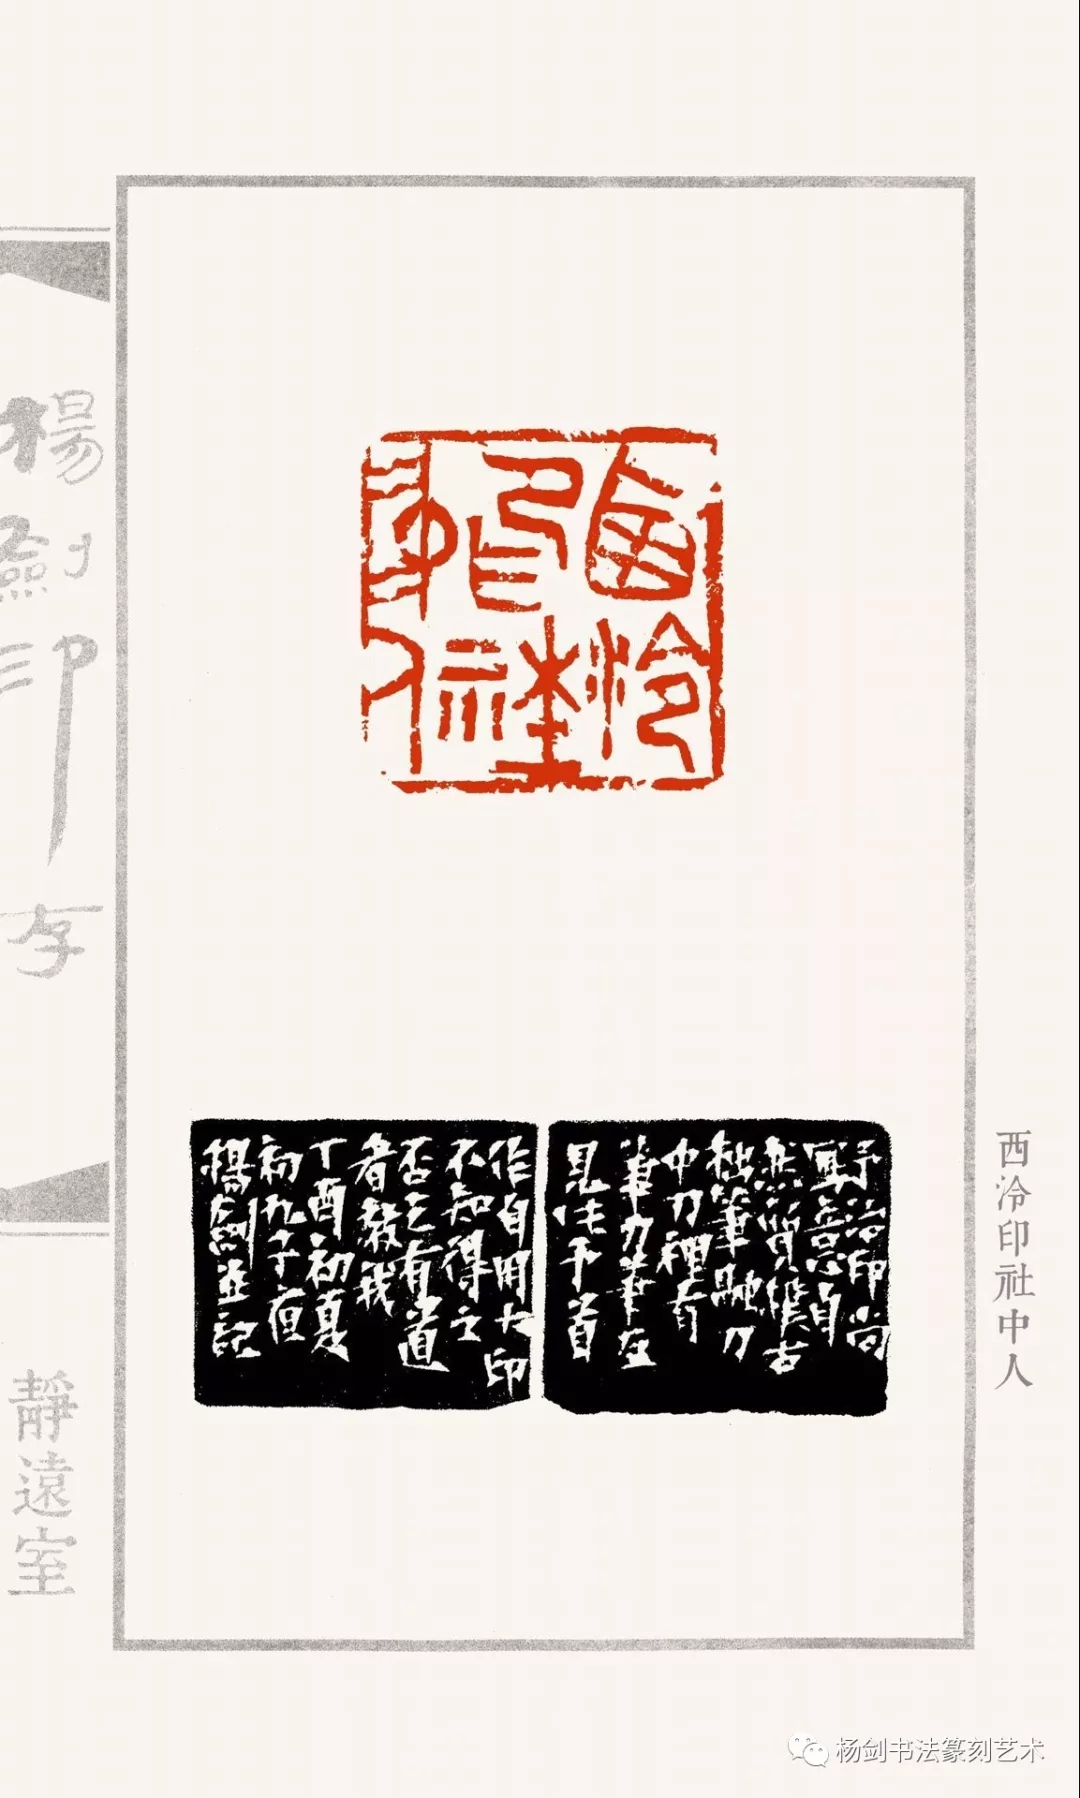 西泠印社中人
西泠印社中人
予治印尚
寫意自
然學漢古
拙筆馳刀
中刀裡有
筆力筆在
見法平首
作自用大印
不知得之
否之有道
者教我
丁酉初夏
初九子夜
楊劍並記
楊劍印存
靜遠室
杨剑书法篆刻艺术